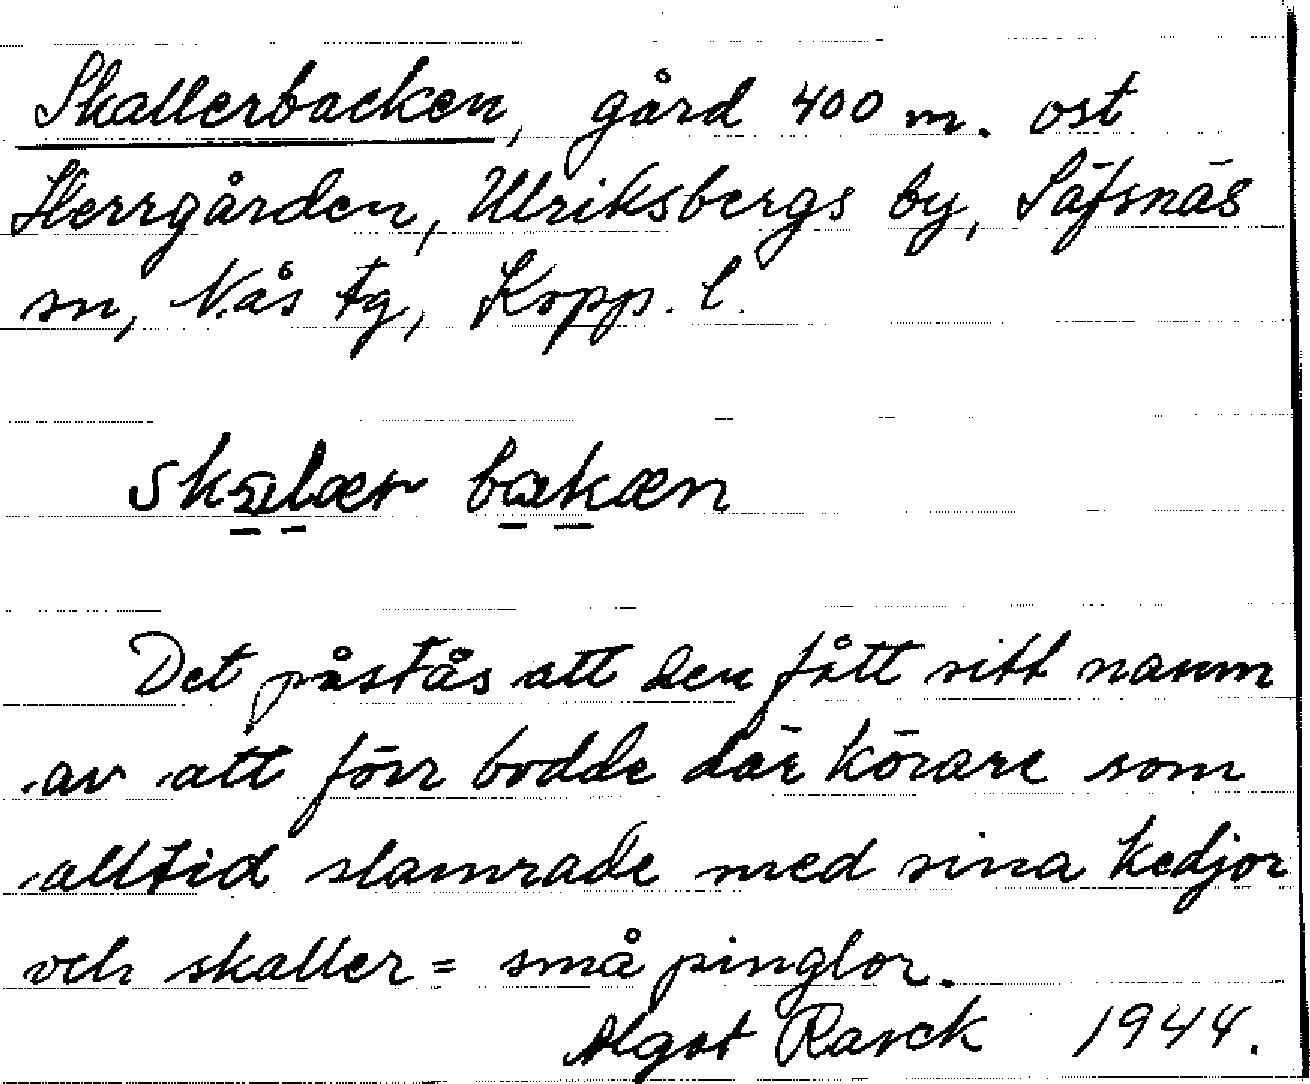 Skallerbacken, gård 400 m. ost
Herrgården, Ulriksbergs by, Säfsnäs
sn, Nås tg, Kopp. l.
skalær bakæn
Det påstås att den fått sitt namn
av att förr bodde där körare som
alltid slamrade med sina kedjor
och skaller = små pinglor.
Algot Rasck 1944.